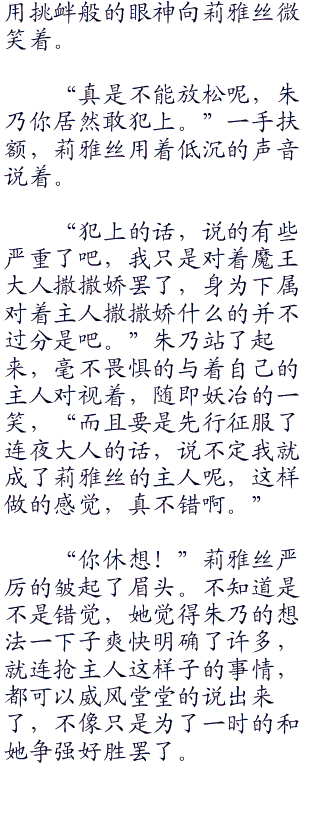 用挑衅般的眼神向莉雅丝微
笑着。
“真是不能放松呢，朱
乃你居然敢犯上。”一手扶
额，莉雅丝用着低沉的声音
说着。
“犯上的话，说的有些
严重了吧，我只是对着魔王
大人撒撒娇罢了，身为下属
对着主人撒撒娇什么的并不
过分是吧。”朱乃站了起
来，毫不畏惧的与着自己的
主人对视着，随即妖冶的一
笑，“而且要是先行征服了
连夜大人的话，说不定我就
成了莉雅丝的主人呢，这样
做的感觉，真不错啊。”
“你休想！”莉雅丝严
厉的皱起了眉头。不知道是
不是错觉，她觉得朱乃的想
法一下子爽快明确了许多，
就连抢主人这样子的事情，
都可以威风堂堂的说出来
了，不像只是为了一时的和
她争强好胜罢了。